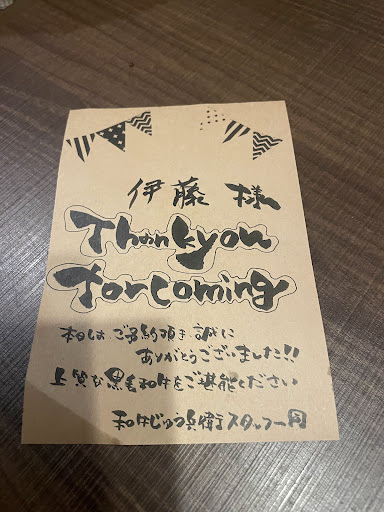 伊藤 様
Thank you
for coming
本日は ご予約頂き 誠に
ありがとうございました!!
上質な黒毛和牛をご堪能ください
和牛じゅう兵衛スタッフ一同